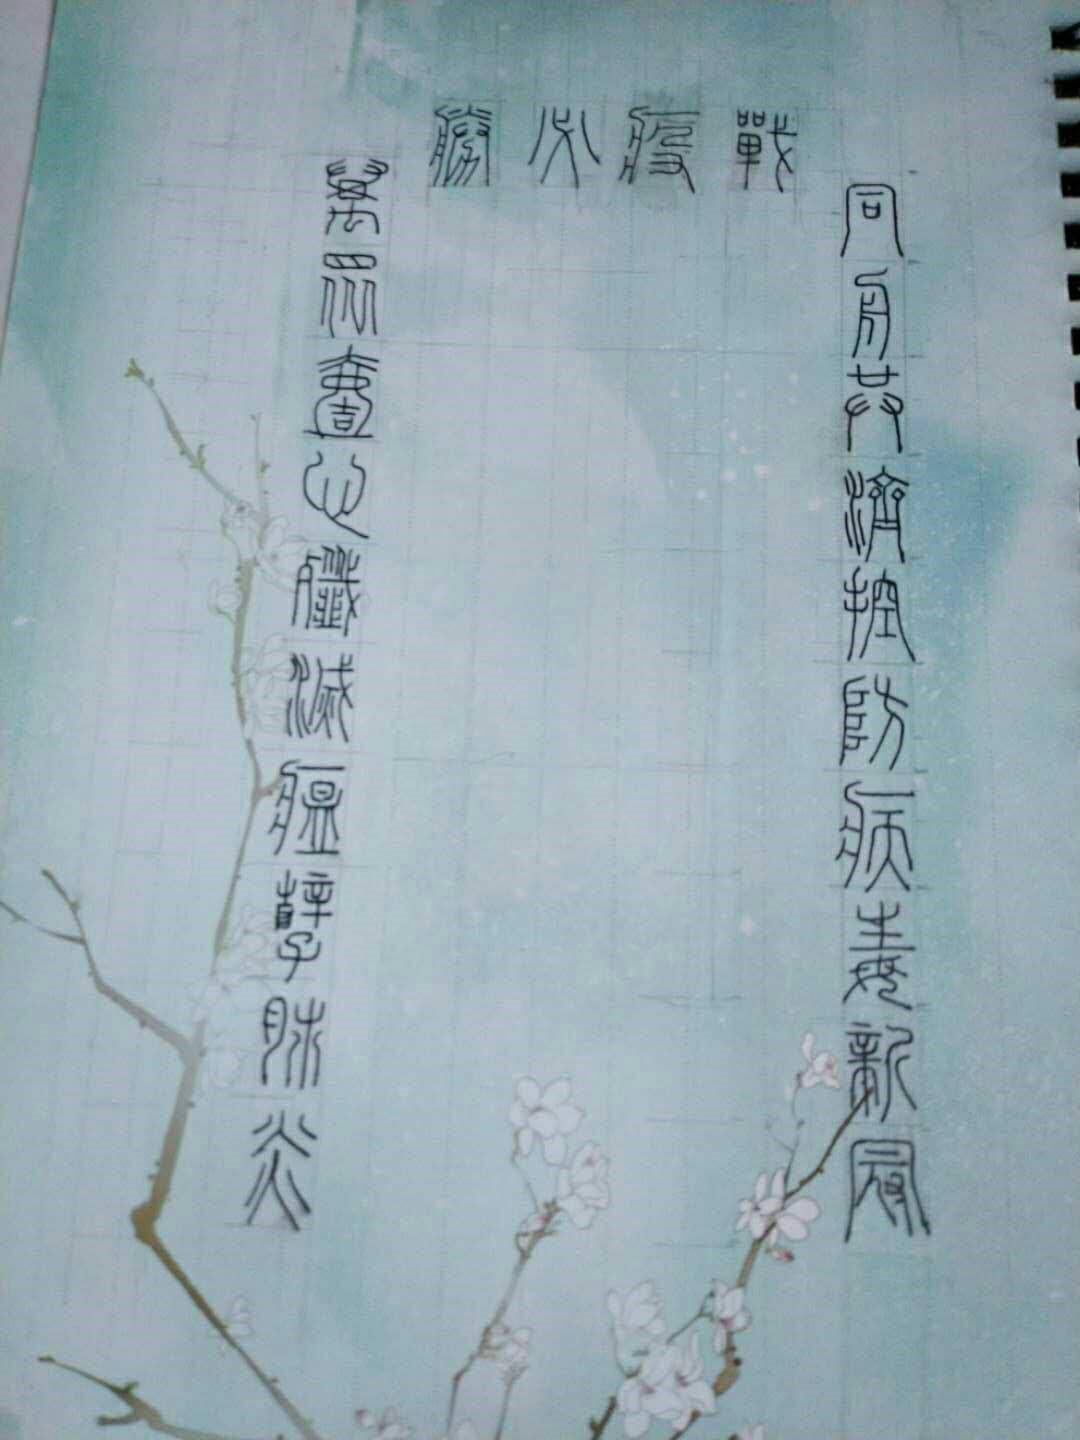 戰疫必勝
同舟共濟控防病毒新冠
萬眾壹心殲滅瘟孽肺炎